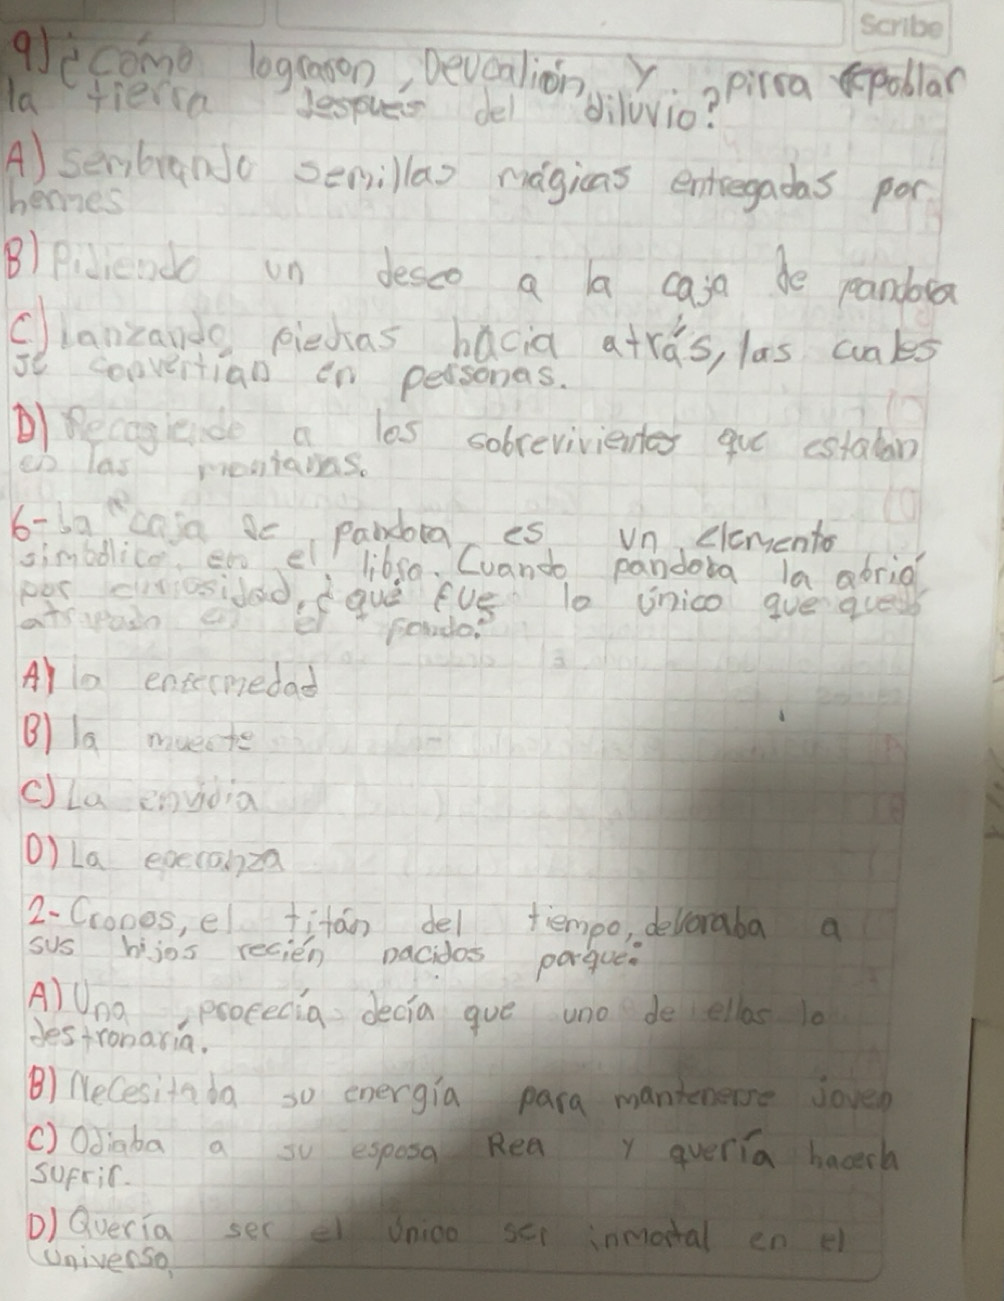 Scribe
9) ¿cómo lograron, Deucalión y pirra repoblar
la tierra después del diluvio?
A) sembrando semillas mágicas entregadas por
hermes
B) Pidiendo un deseo a la caja de pandora
C) Lanzando piedras hacia atrás, las cuales
se convertían en personas.
D) Recogiende a los sobrevivientes que estaban
en las montañas.
6- La "caja de pandora es un elemento
simbólico en el libro. Cuando pandora la abrió
por curiosidad, ¿qué fue lo único que quedó
el fondo?
A) la enfermedad
B) la muerte
C) La envidia
D) La eperanza
2- Cronos, el titán del tiempo, devoraba a
sus hijos recién nacidos porque:
A) Una profecía decía que uno de ellos lo
destronaría.
B) Necesitaba su energía para mantenerse joven
C) Odiaba a su esposa Rea y quería hacerla
sufrir.
D) Quería ser el único ser inmortal en el
universo.